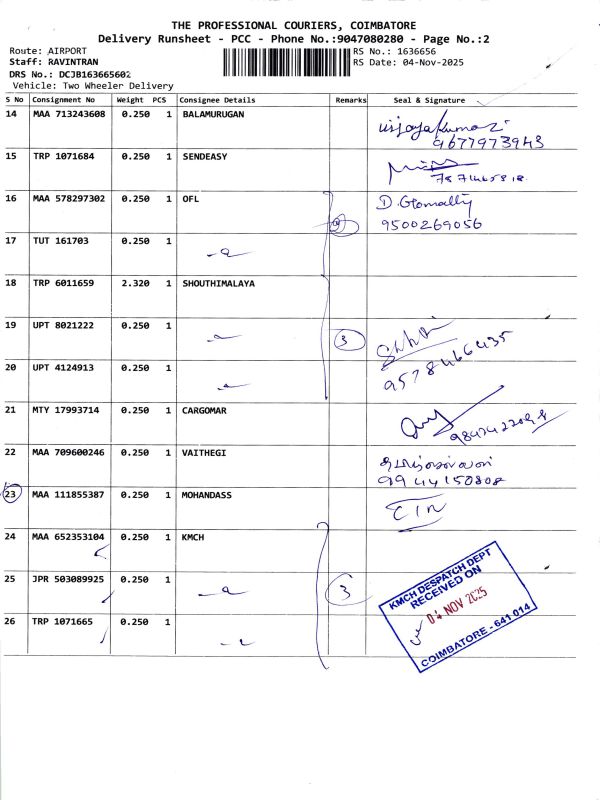 THE PROFESSIONAL COURIERS, COIMBATORE
Delivery Runsheet - PCC - Phone No.:9047080280 - Page No.:2
Route: AIRPORT RS No.: 1636656
Staff: RAVINTRAN RS Date: 04-Nov-2025
DRS No.: DCJB163665602
Vehicle: Two Wheeler Delivery
S No Consignment No Weight PCS Consignee Details Remarks Seal & Signature
14 MAA 713243608 0.250 1 BALAMURUGAN
9677973943
15 TRP 1071684 0.250 1 SENDEASY
16 MAA 578297302 0.250 1 OFL
9500269056
17 TUT 161703 0.250 1
18 TRP 6011659 2.320 1 SHOUTHIMALAYA
19 UPT 8021222 0.250 1 3
9578466435
20 UPT 4124913 0.250 1
21 MTY 17993714 0.250 1 CARGOMAR
22 MAA 709600246 0.250 1 VAITHEGI
9944150808
23 MAA 111855387 0.250 1 MOHANDASS
24 MAA 652353104 0.250 1 KMCH
25 JPR 503089925 0.250 1 3
26 TRP 1071665 0.250 1
KMCH DESPATCH DEPT
RECEIVED ON
04 NOV 2025
COIMBATORE - 641 014